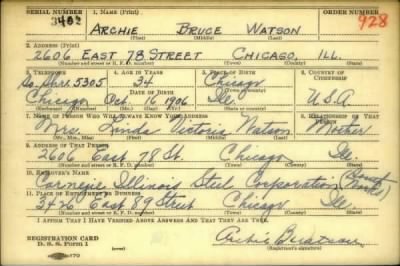 SERIAL NUMBER 1. NAME (Print) ORDER NUMBER
3402 ARCHIE BRUCE WATSON 928
(First) (Middle) (Last)
2. ADDRESS (Print)
2606 EAST 78 STREET CHICAGO, ILL.
(Number and street or R. F. D. number) (Town) (County) (State)
3. TELEPHONE 4. AGE IN YEARS 5. PLACE OF BIRTH 6. COUNTRY OF CITIZENSHIP
So. Shr. 5305 34 Chicago
DATE OF BIRTH
Chicago Oct. 16 1906 Ill. U.S.A
(Exchange) (Number) (Mo.) (Day) (Yr.) (State or country)
7. NAME OF PERSON WHO WILL ALWAYS KNOW YOUR ADDRESS 8. RELATIONSHIP OF THAT PERSON
Mrs. Linda Victoria Watson Mother
(Mr., Mrs., Miss) (First) (Middle) (Last)
9. ADDRESS OF THAT PERSON
2606 East 78 St. Chicago Ill
(Number and street or R. F. D. number) (Town) (County) (State)
10. EMPLOYER'S NAME
Carnegie Illinois Steel Corporation (South Works)
11. PLACE OF EMPLOYMENT OR BUSINESS
3426 East 89 Street Chicago Ill.
(Number and street or R. F. D. number) (Town) (County) (State)
I AFFIRM THAT I HAVE VERIFIED ABOVE ANSWERS AND THAT THEY ARE TRUE.
REGISTRATION CARD
D. S. S. Form 1 Archie B Watson
(Registrant's signature)